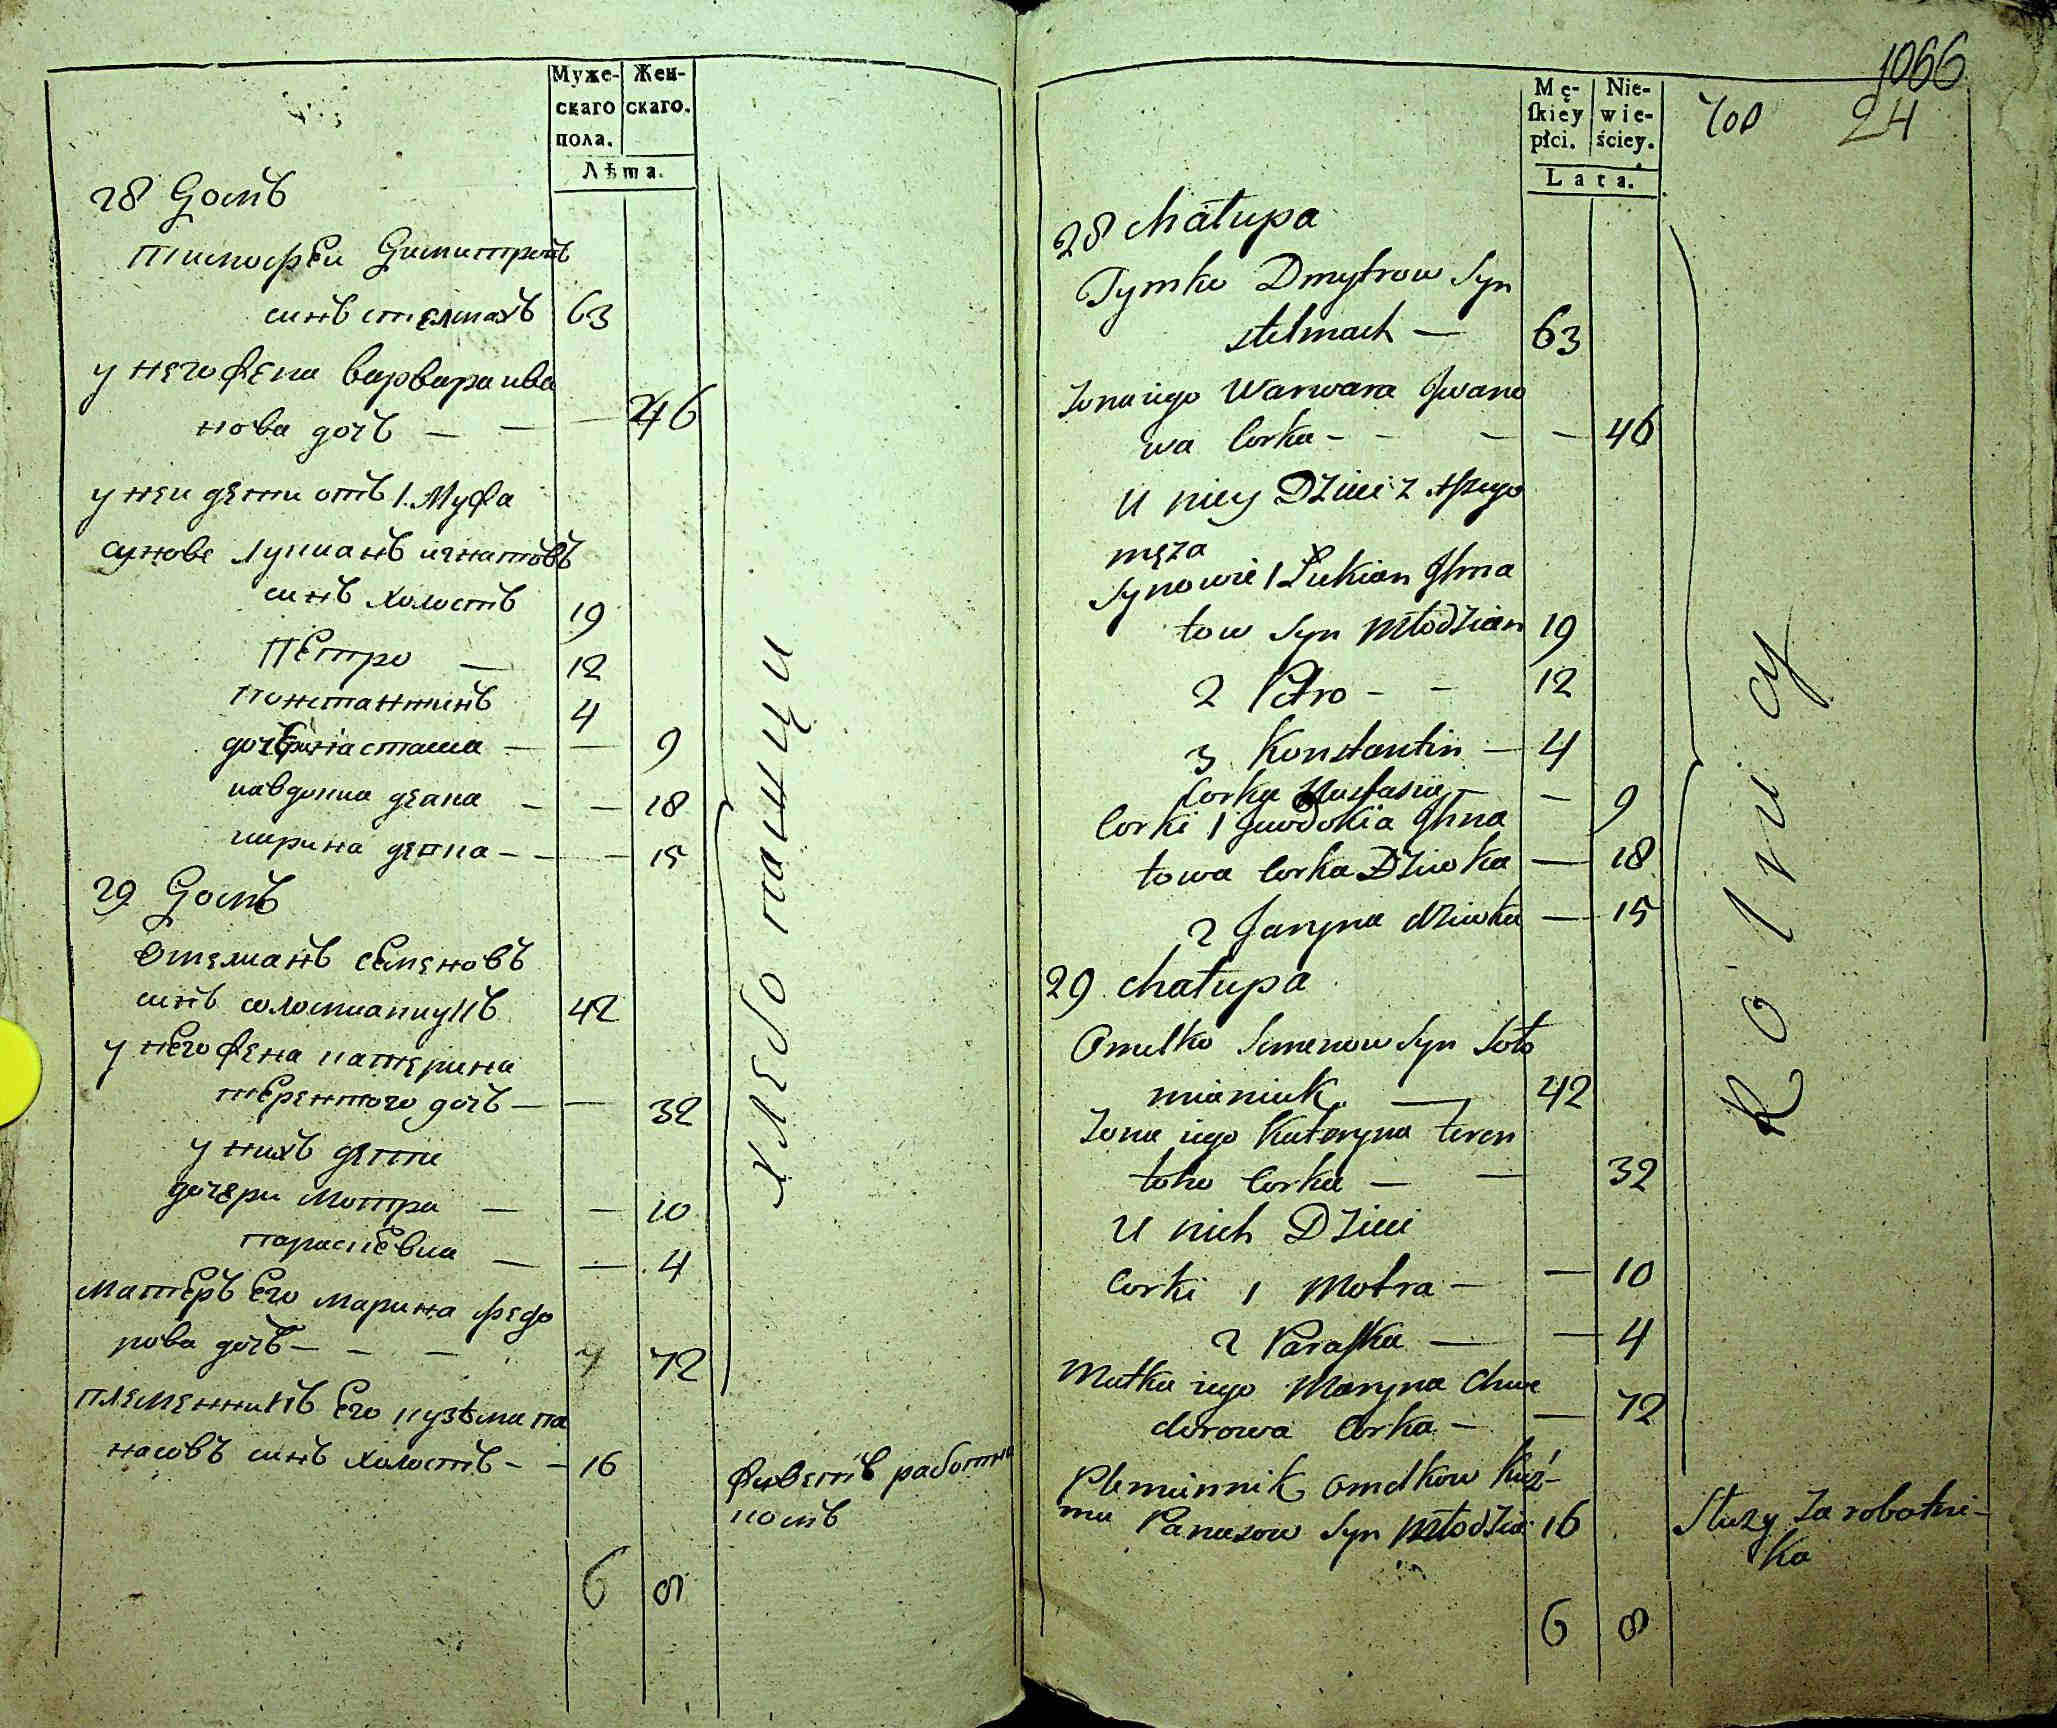 Муже-
скаго
пола.
Жен-
скаго.
Лѣта.
28 Домъ
тимофеи Димитровъ
синъ стелмахъ 63
у него жена варвара ива
нова дочъ — — — 46
у неи дети отъ 1. Мужа
сунове лукианъ игнатовъ
синъ холостъ 19
Петро — 12
константинъ 4
дочъ настасиа — — 9
иавдокиа девка — — 18
ирина девка — — — 15
29 Домъ
Омелианъ семеновъ
синъ соломианиукъ 42
у него жена катерина
терентого дочъ — — 32
у нихъ дети
дочери Мотра — — 10
параскевиа — — 4
матеръ его марина федо
рова дочъ — — — 72
племенникъ его кузьма па
насовъ синъ холостъ — — 16
живетъ работни
комъ
хлебопашци
6 8
1066
Mę-
ſkiey
płci.
Nie-
wie-
ściey.
Lata.
24
28 chałupa
Tymko Dmytrow Syn
stelmach — 63
Zona iego Warwara Jwano
wa Corka — — — — 46
U niey Dzieci z 1szego
męża
Synowie 1 Łukian Jhna
tow Syn młodzian 19
2 Petro — — 12
3 Konstantin — 4
Corka Nastasia — — 9
Corki 1 Jawdokia Jhna
towa Corka Dziwka — 18
2 Jaryna dziwka — 15
29 chałupa
Omelko Semenow Syn Soło
mianiuk — 42
Zona iego Kateryna teren
toho Corka — — 32
U nich Dzieci
Corki 1 Motra — — 10
2 Paraſka — — 4
Matka iego Maryna Chwe
dorowa Corka — — 72
Plemiennik omelkow Kuź-
ma Panasow Syn młodzia 16
Służy za robotni-
ka
Rolnicy
6 8